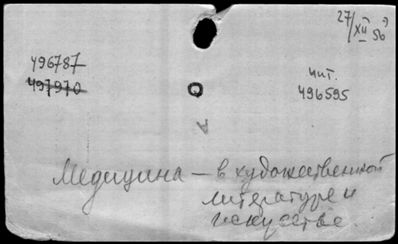 27/XII 50 г
496787
497970
чит.
496595
А
Медицина – в художественной
литературе и
искусстве.